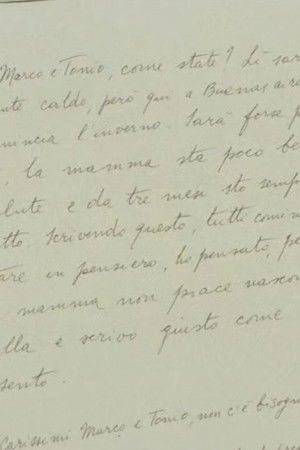 Marco e Tonio, come state? Lì sar
caldo, però qui a Buenos aire
l'inverno. Sarà forse p
, la mamma sta poco be
lute e da tre mesi sto semp
tto. Scrivendo questo, tutti com
are in pensiero, ho pensato, pe
mamma non piace nascon
lla e scrivo giusto come
sento.
Carissimi Marco e Tonio, non c'è bisogn